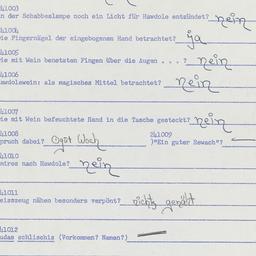 241003
n der Schabbeslampe noch ein Licht für Hawdole entzündet? nein
241004
ie Fingernägel der eingebogenen Hand betrachtet? ja
241005
ie mit Wein benetzten Finger über die Augen ...? nein
241006
awdolewein: als magisches Mittel betrachtet? nein
241007
ie mit Wein befeuchtete Hand in die Tasche gesteckt? nein
241008 241009
pruch dabei? Gut Woch )"Ein guter Rewach"?
241010
mires nach Hawdole? nein
241011
eisszeug nähen besonders verpönt? nichts genäht
241012
udas schlischis (Vorkommen? Namen?)